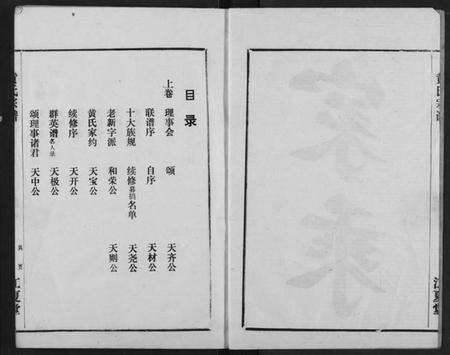 目录
上卷 理事会 颂 天齐公
联谱序 自序 天材公
十大族规 续修募捐名单 天尧公
老新字派 和荣公 天则公
黄氏家约 天宝公
续修序 天开公
群英谱名人录 天极公
颂理事诸君 天中公
黄氏宗谱
江夏堂
黄氏宗谱
江夏堂